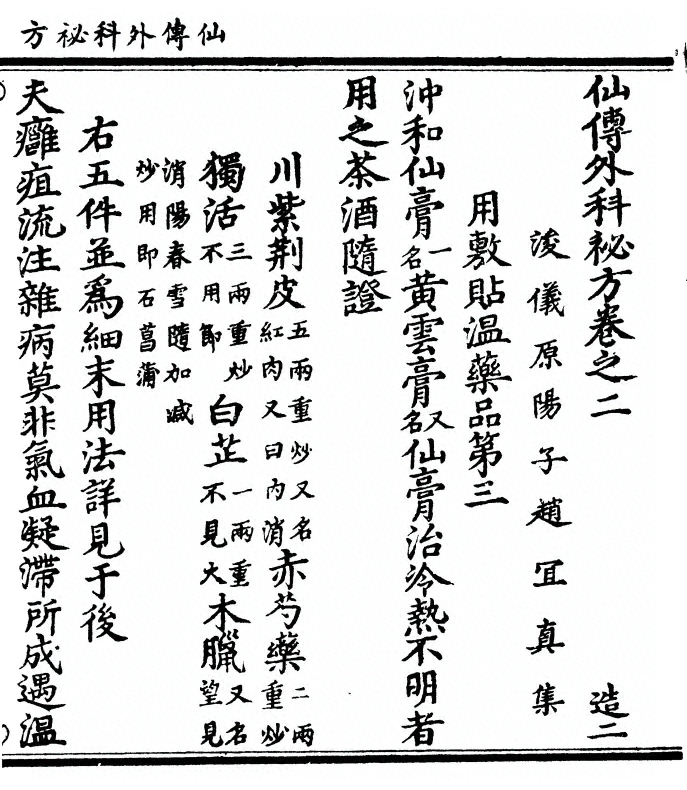 仙傳外科祕方
仙傳外科祕方卷之二 造二
浚儀原陽子趙冝真集
用敷貼温藥品第三
沖和仙膏一名黃雲膏又名仙膏治冷熱不明者
用之茶酒隨證
川紫荆皮五兩重炒又名紅肉又曰内消赤芍藥二兩重炒
獨活三兩重炒不用節白芷一兩重不見火木臘又名望見
消陽春雪隨加減炒用即石菖蒲
右五件並爲細末用法詳見于後
夫癰疽流注雜病莫非氣血凝滯所成遇温